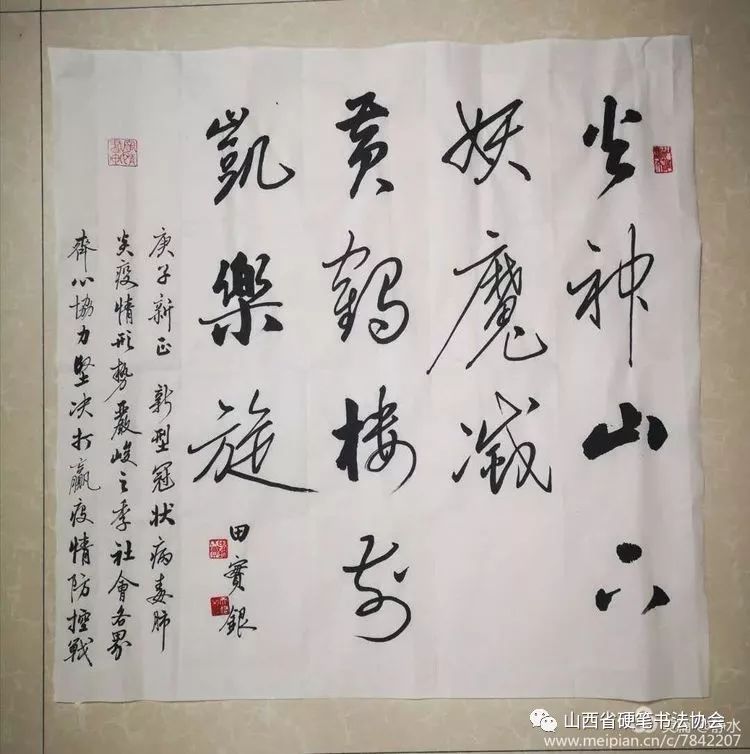 火神山下
妖魔滅
黄鶴楼前
凱樂旋
田實銀
庚子新正 新型冠状病毒肺
炎疫情形勢嚴峻之季社會各界
齊心協力堅决打贏疫情防控戰
山西省硬笔书法协会
www.meipian.cn/c/7842207